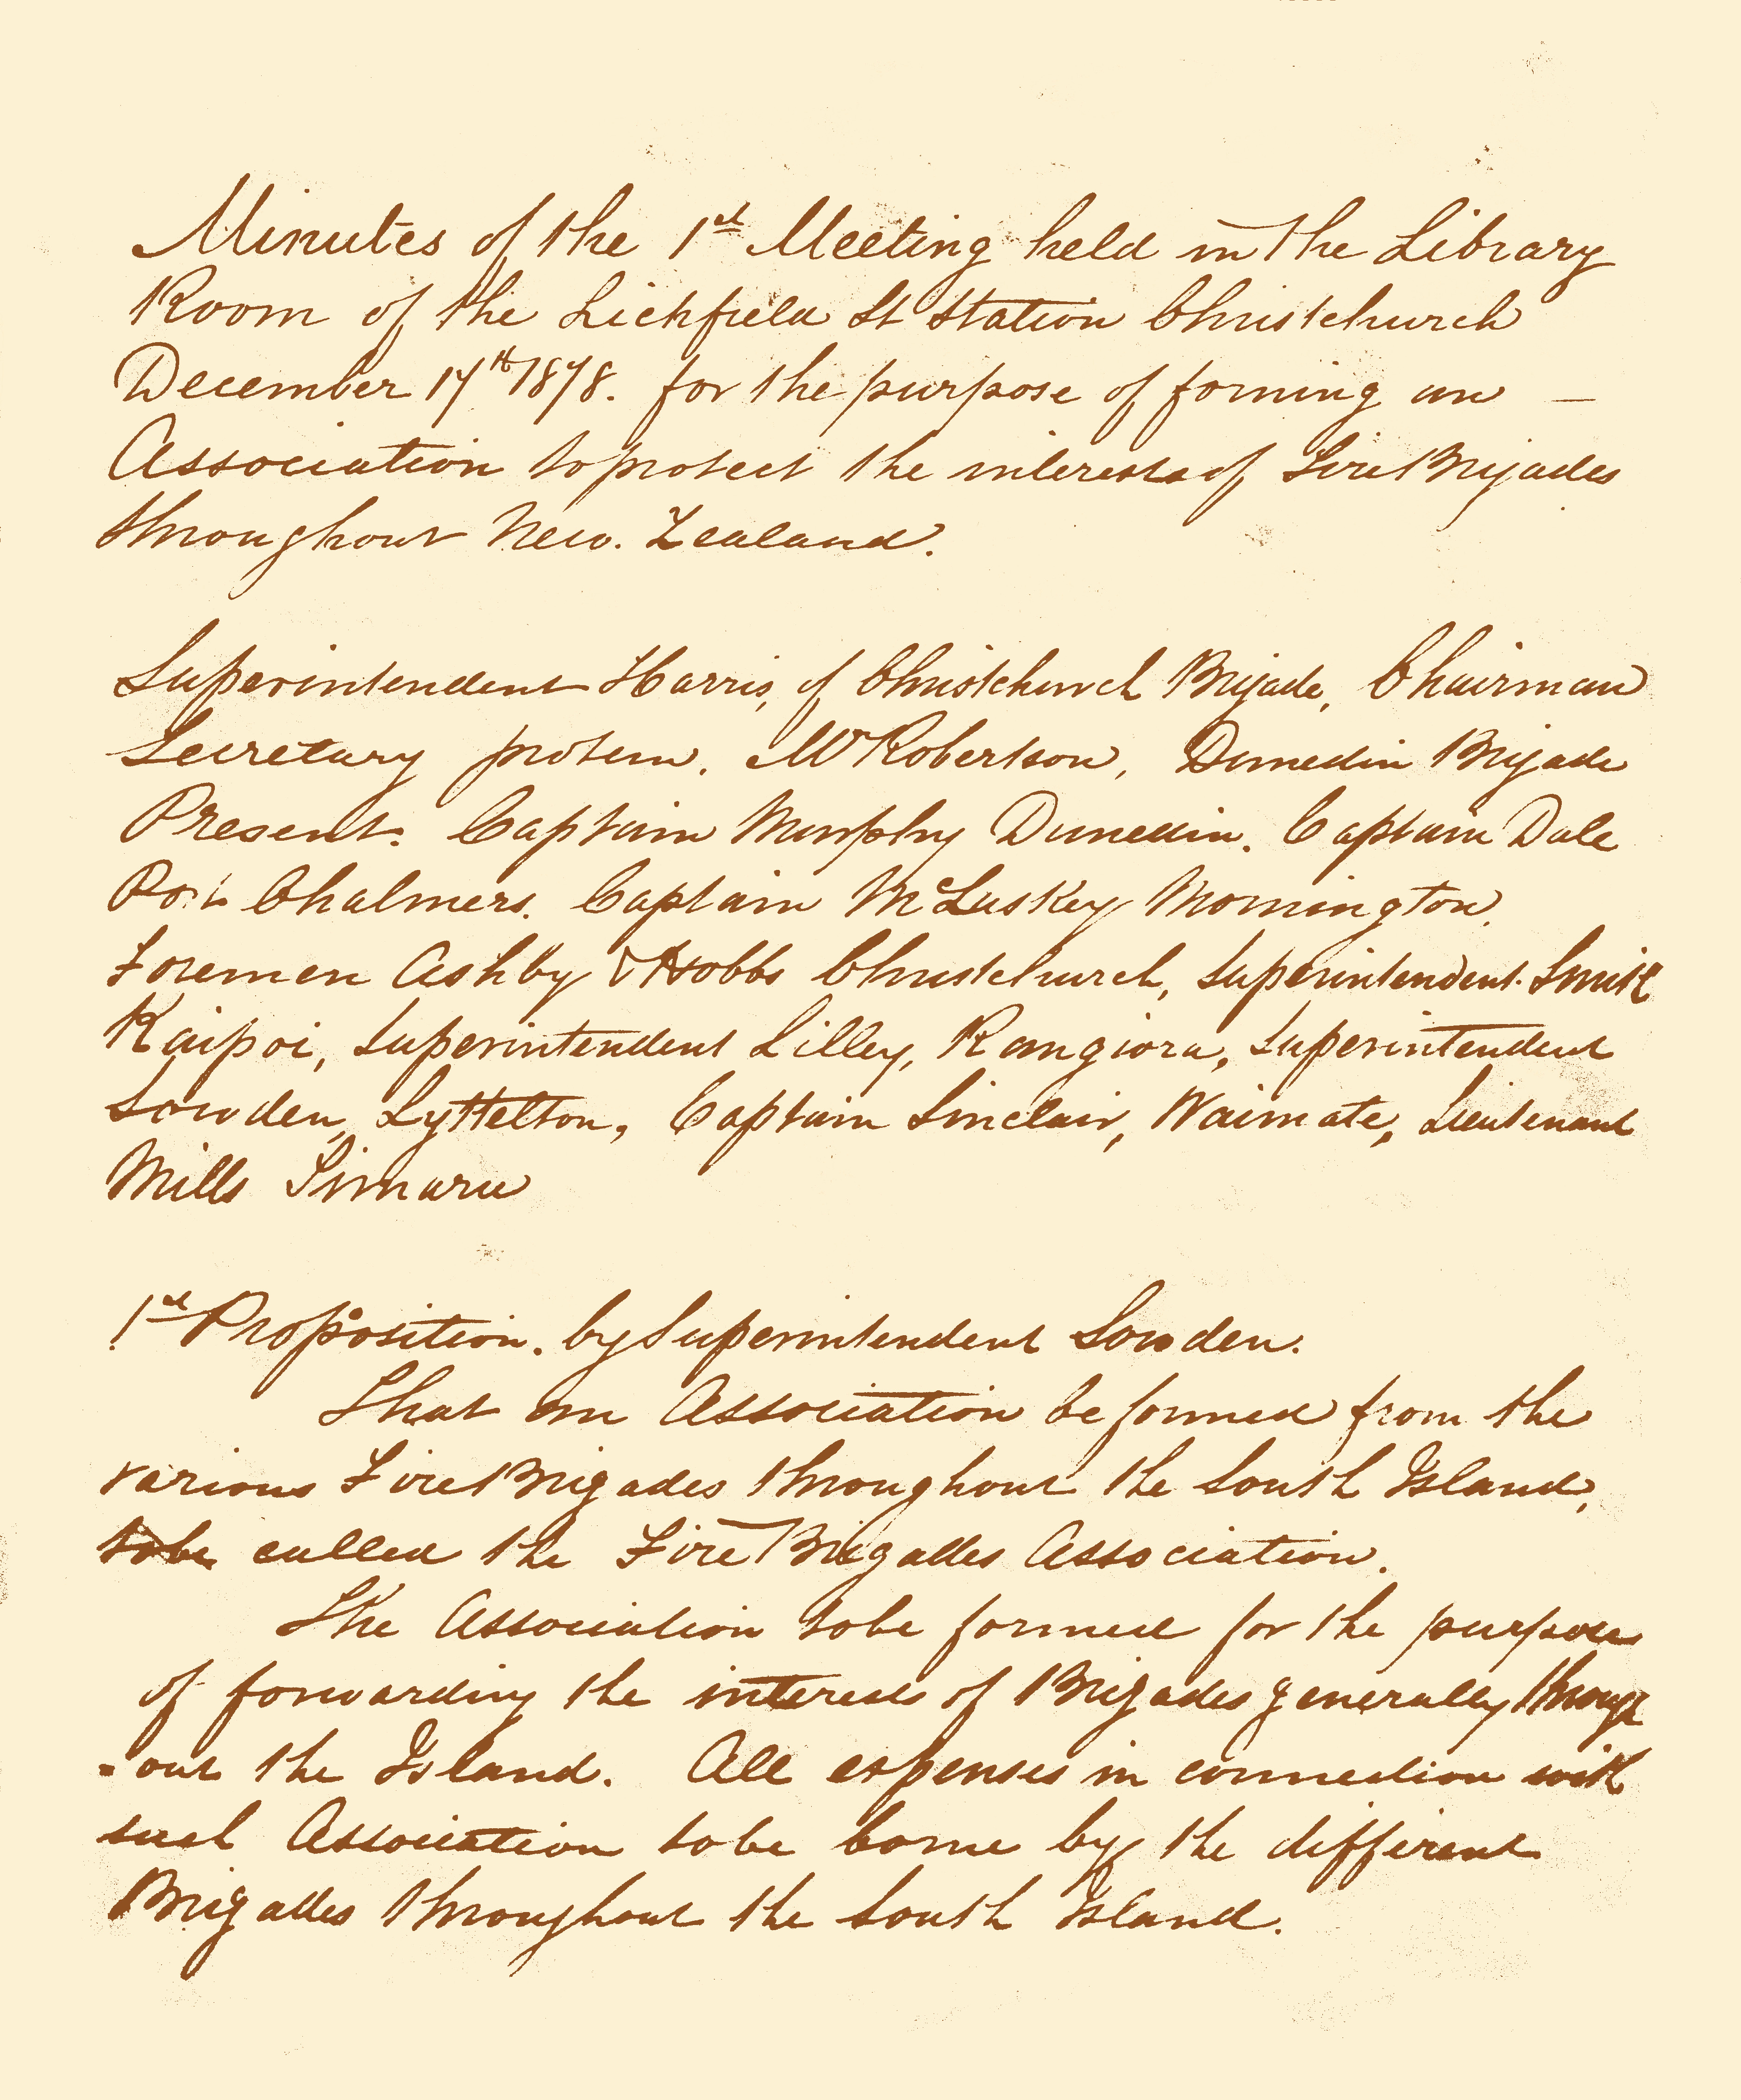 Minutes of the 1st Meeting held in the Library
Room of the Lichfield St Station Christchurch
December 17th 1878. for the purpose of forming an —
Association to protect the interests of Fire Brigades
throughout New. Zealand.
Superintendent Harris, of Christchurch Brigade, Chairman
Secretary protem. Mr Robertson, Dunedin Brigade
Present. Captain Murphy Dunedin. Captain Dale
Port Chalmers. Captain McLuskey Mornington.
Foremen Ashby & Hobbs Christchurch, Superintendent. Smith
Kaipoi, Superintendent Lilley, Rangiora, Superintendent
Sowden, Lyttelton, Captain Sinclair, Waimate, Lieutenant
Mills Timaru
1st Proposition. by Superintendent Sowden.
That an Association be formed from the
various Fire Brigades throughout the South Island,
to be called the Fire Brigades Association.
The Association to be formed for the purpose
of forwarding the interests of Brigades generally through
-out the Island. All expenses in connection with
such Association to be borne by the different
Brigades throughout the South Island.